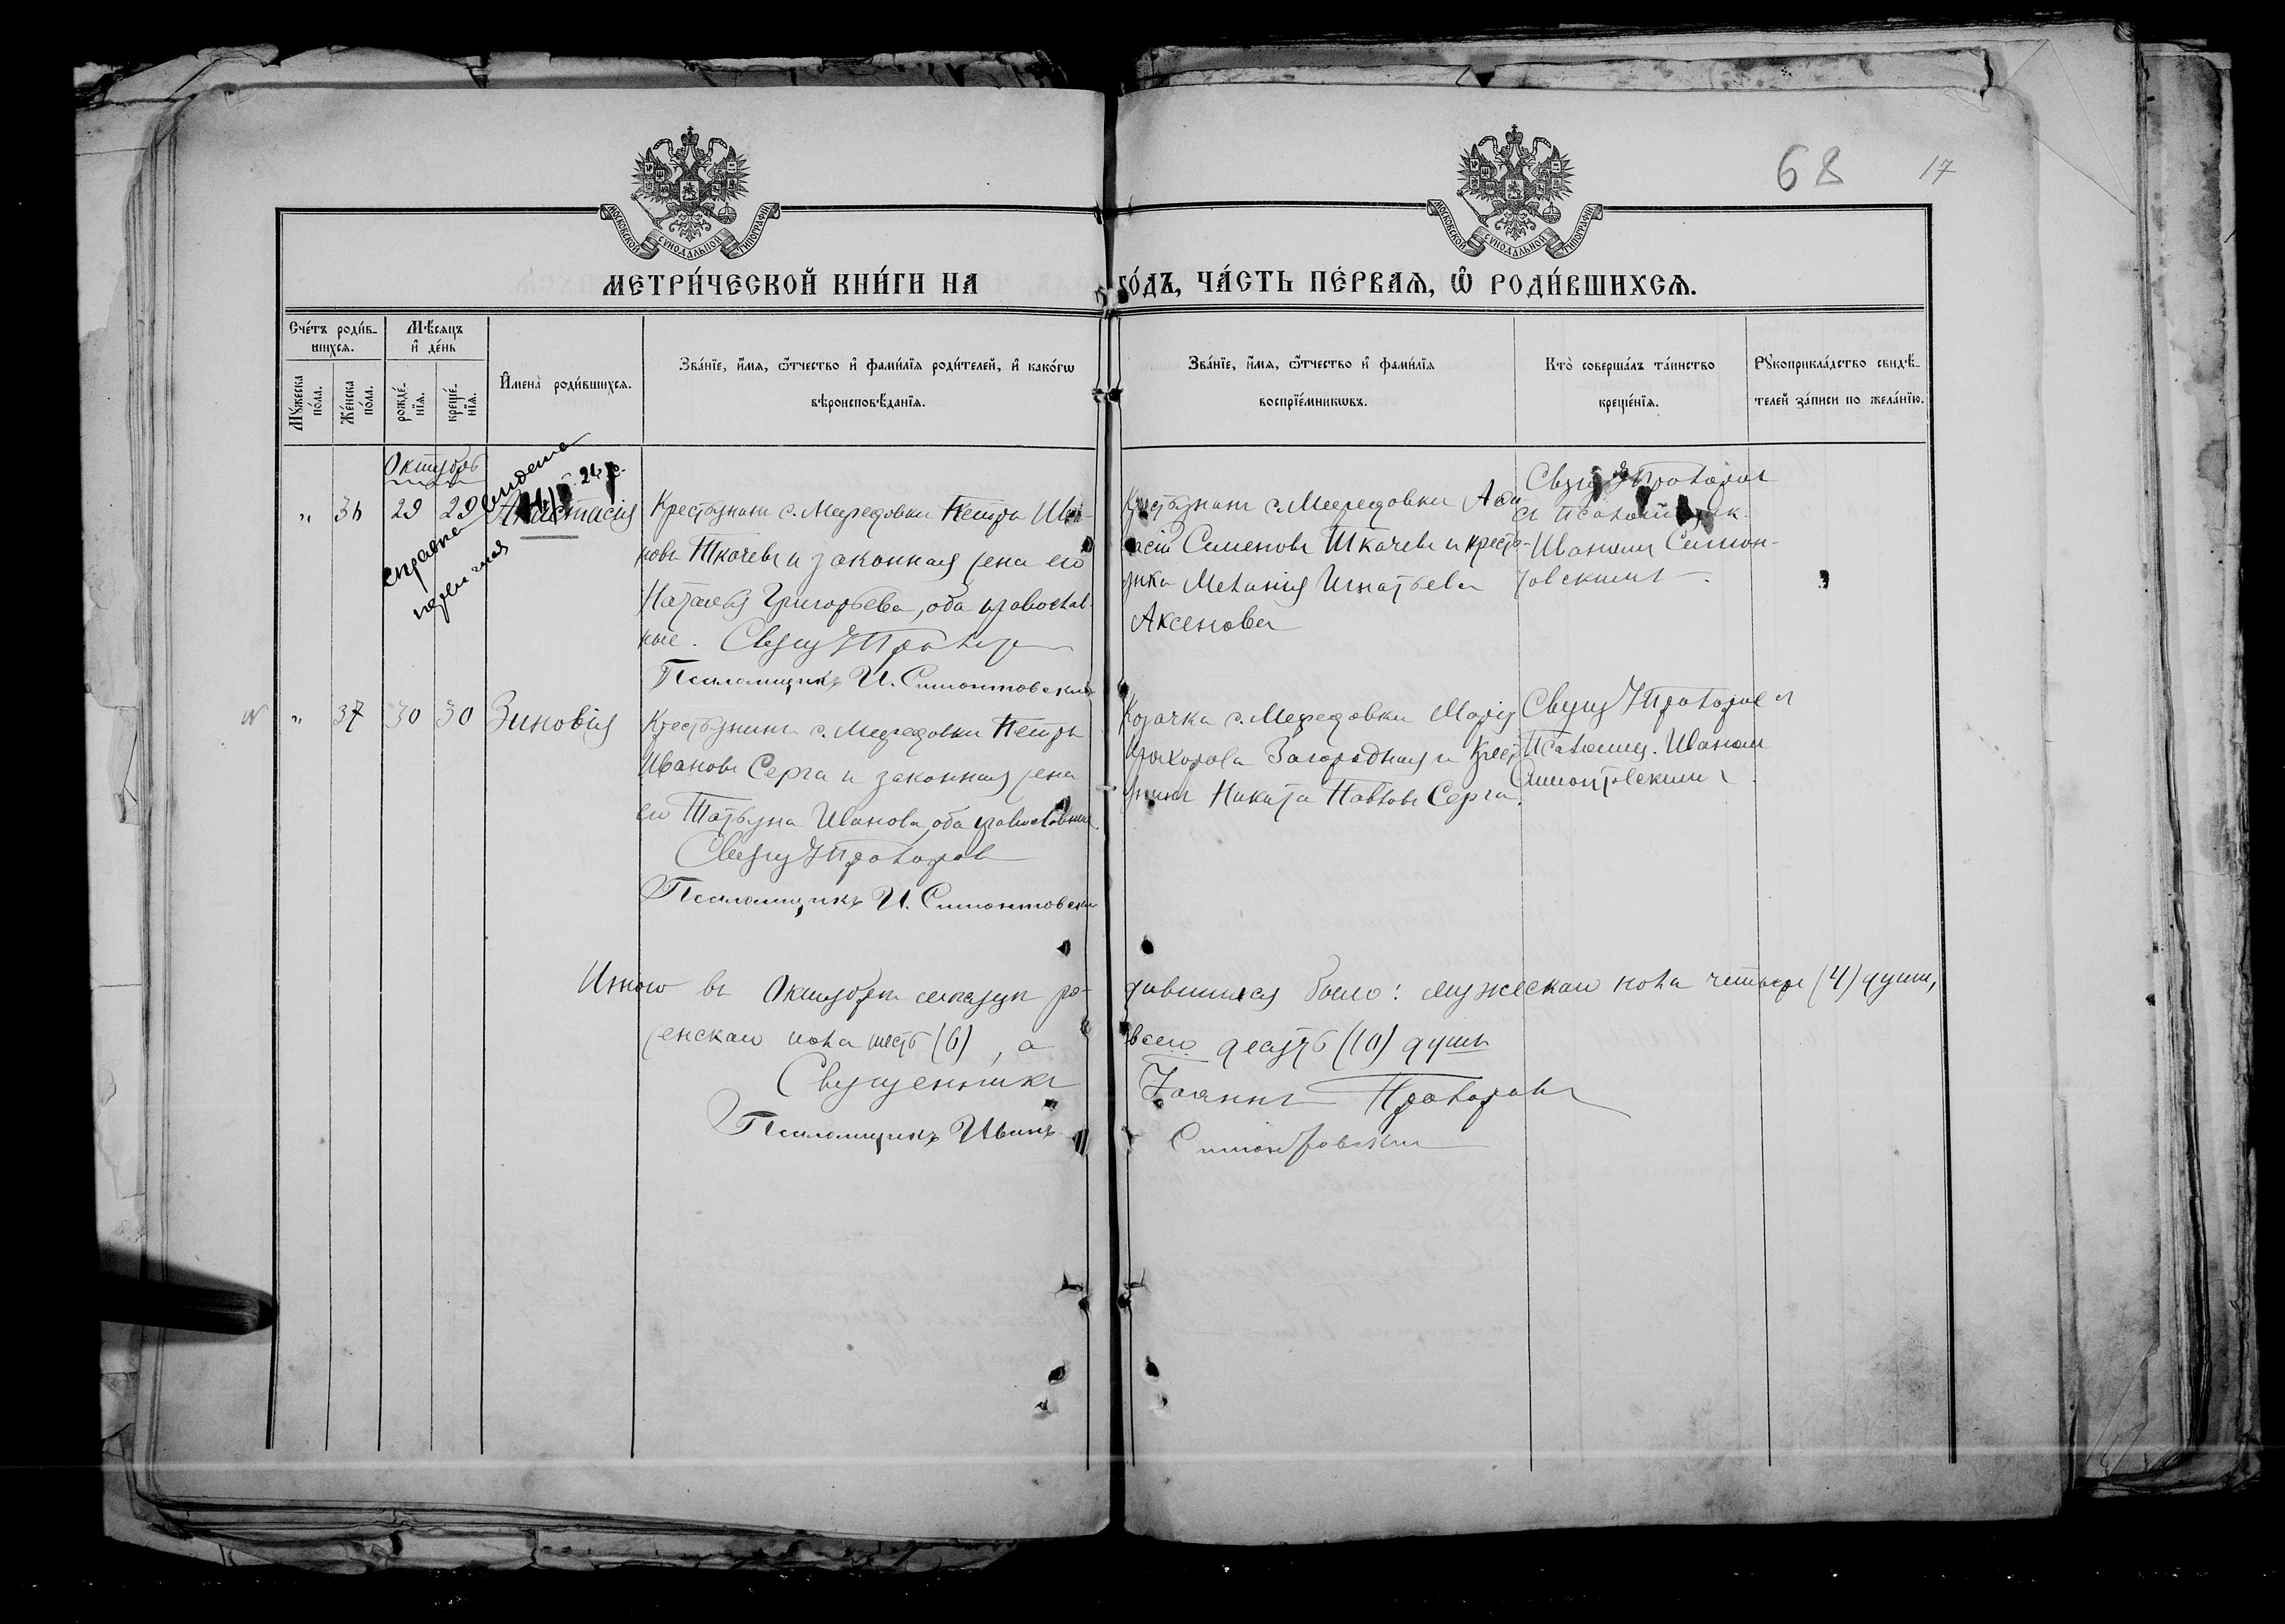 68 17
МОСКОВСКОЙ СѴНОДАЛЬНОЙ ТИПОГРАФІИ
МОСКОВСКОЙ СѴНОДАЛЬНОЙ ТИПОГРАФІИ
МЕТРИ́ЧЕСКОЙ КНИ́ГИ НА ГО́ДЪ, ЧА́СТЬ ПЕ́РВАѦ, Ѽ РОДИ́ВШИХСѦ.
Сче́тъ роди́в-
шихсѧ.
Мꙋ́жеска по́ла.
Же́нска по́ла.
Мѣ́сѧцъ и҆ де́нь
рожде́-
нїѧ.
креще́-
нїѧ.
И҆мена̀ роди́вшихсѧ.
Зва́нїе, и҆́мѧ, ѻ҆́тчество и҆ фами́лїѧ роди́телей, и҆ како́гѡ
вѣроисповѣ́данїѧ.
Зва́нїе, и҆́мѧ, ѻ҆́тчество и҆ фами́лїѧ
воспрїе́мникѡвъ.
Кто̀ соверша́лъ та́инство
креще́нїѧ.
Рꙋкоприкла́дство свидѣ́-
телей за́писи по жела́нїю.
Октябрь
„ 36 29 29 Анастасія
справка выдана
24 г.
Крестьянинъ с. Мередовки Петръ Ива-
новъ Ткачевъ и законная жена его
Наталья Григорьева, оба православ-
ные. Свящ І Прохоров
Псаломщикъ И. Симонтовскій
Крестьянинъ с. Мередовки Афа-
насій Симеоновъ Ткачевъ и кресть-
янка Меланія Игнатьева
Аксенова
Свящ І Прохоровъ
съ псаломщик.
Иваномъ Симон-
товскимъ.
„ 37 30 30 Зиновія
Крестьянинъ с. Мередовки Петръ
Ивановъ Серга и законная жена
его Татьяна Иванова, оба православные.
Свящ І Прохоровъ
Псаломщикъ И. Симонтовскій
Козачка с. Мередовки Марія
Прохорова Загородная и крест-
янинъ Никита Павловъ Серга.
Свящ І Прохоровъ съ
псаломщ. Иваномъ
Симонтовскимъ
Итого въ Октябрѣ месяцѣ ро-дившихся было: мужескаго пола четыре (4) души,
женскаго пола шесть (6), а всего десять (10) душъ
Священникъ Іоаннъ Прохоровъ
Псаломщикъ Иванъ Симонтовскій